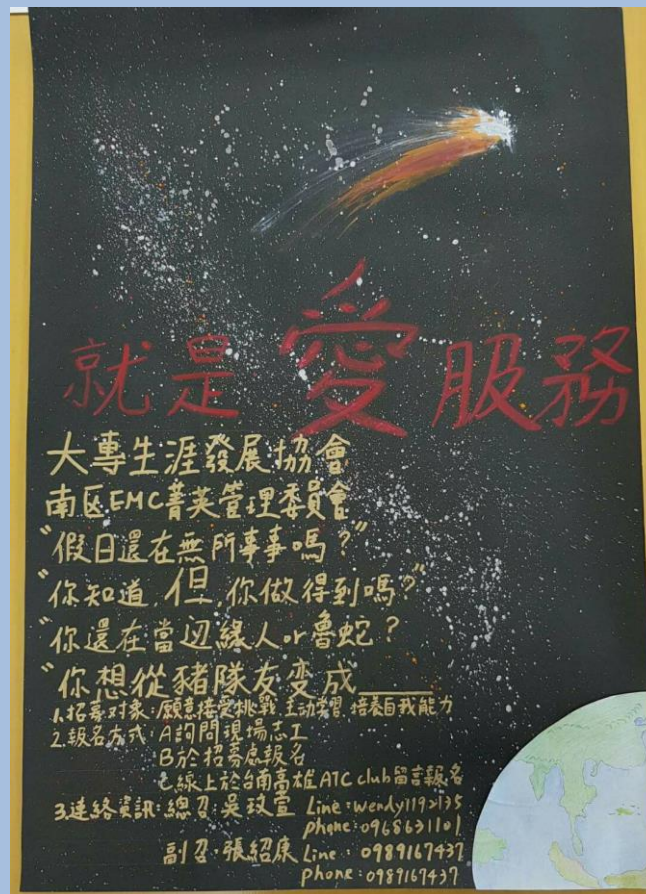 就是愛服務
大專生涯發展協會
南区EMC菁英管理委員會
"假日還在無所事事嗎？"
"你知道,但,你做得到嗎？"
"你還在當边緣人or魯蛇？
"你想從豬隊友变成____
1.招募对象:願意接受挑戰 主动学習 培養自我能力
2.報名方式:A詢問現場志工
B於招募處報名
C線上於台南高雄ATC club留言報名
3.連絡資訊:總召:吳玟萱 Line:wendy1192135
phone:0968631101
副召:張紹康 Line:0989167437
phone:0989167437